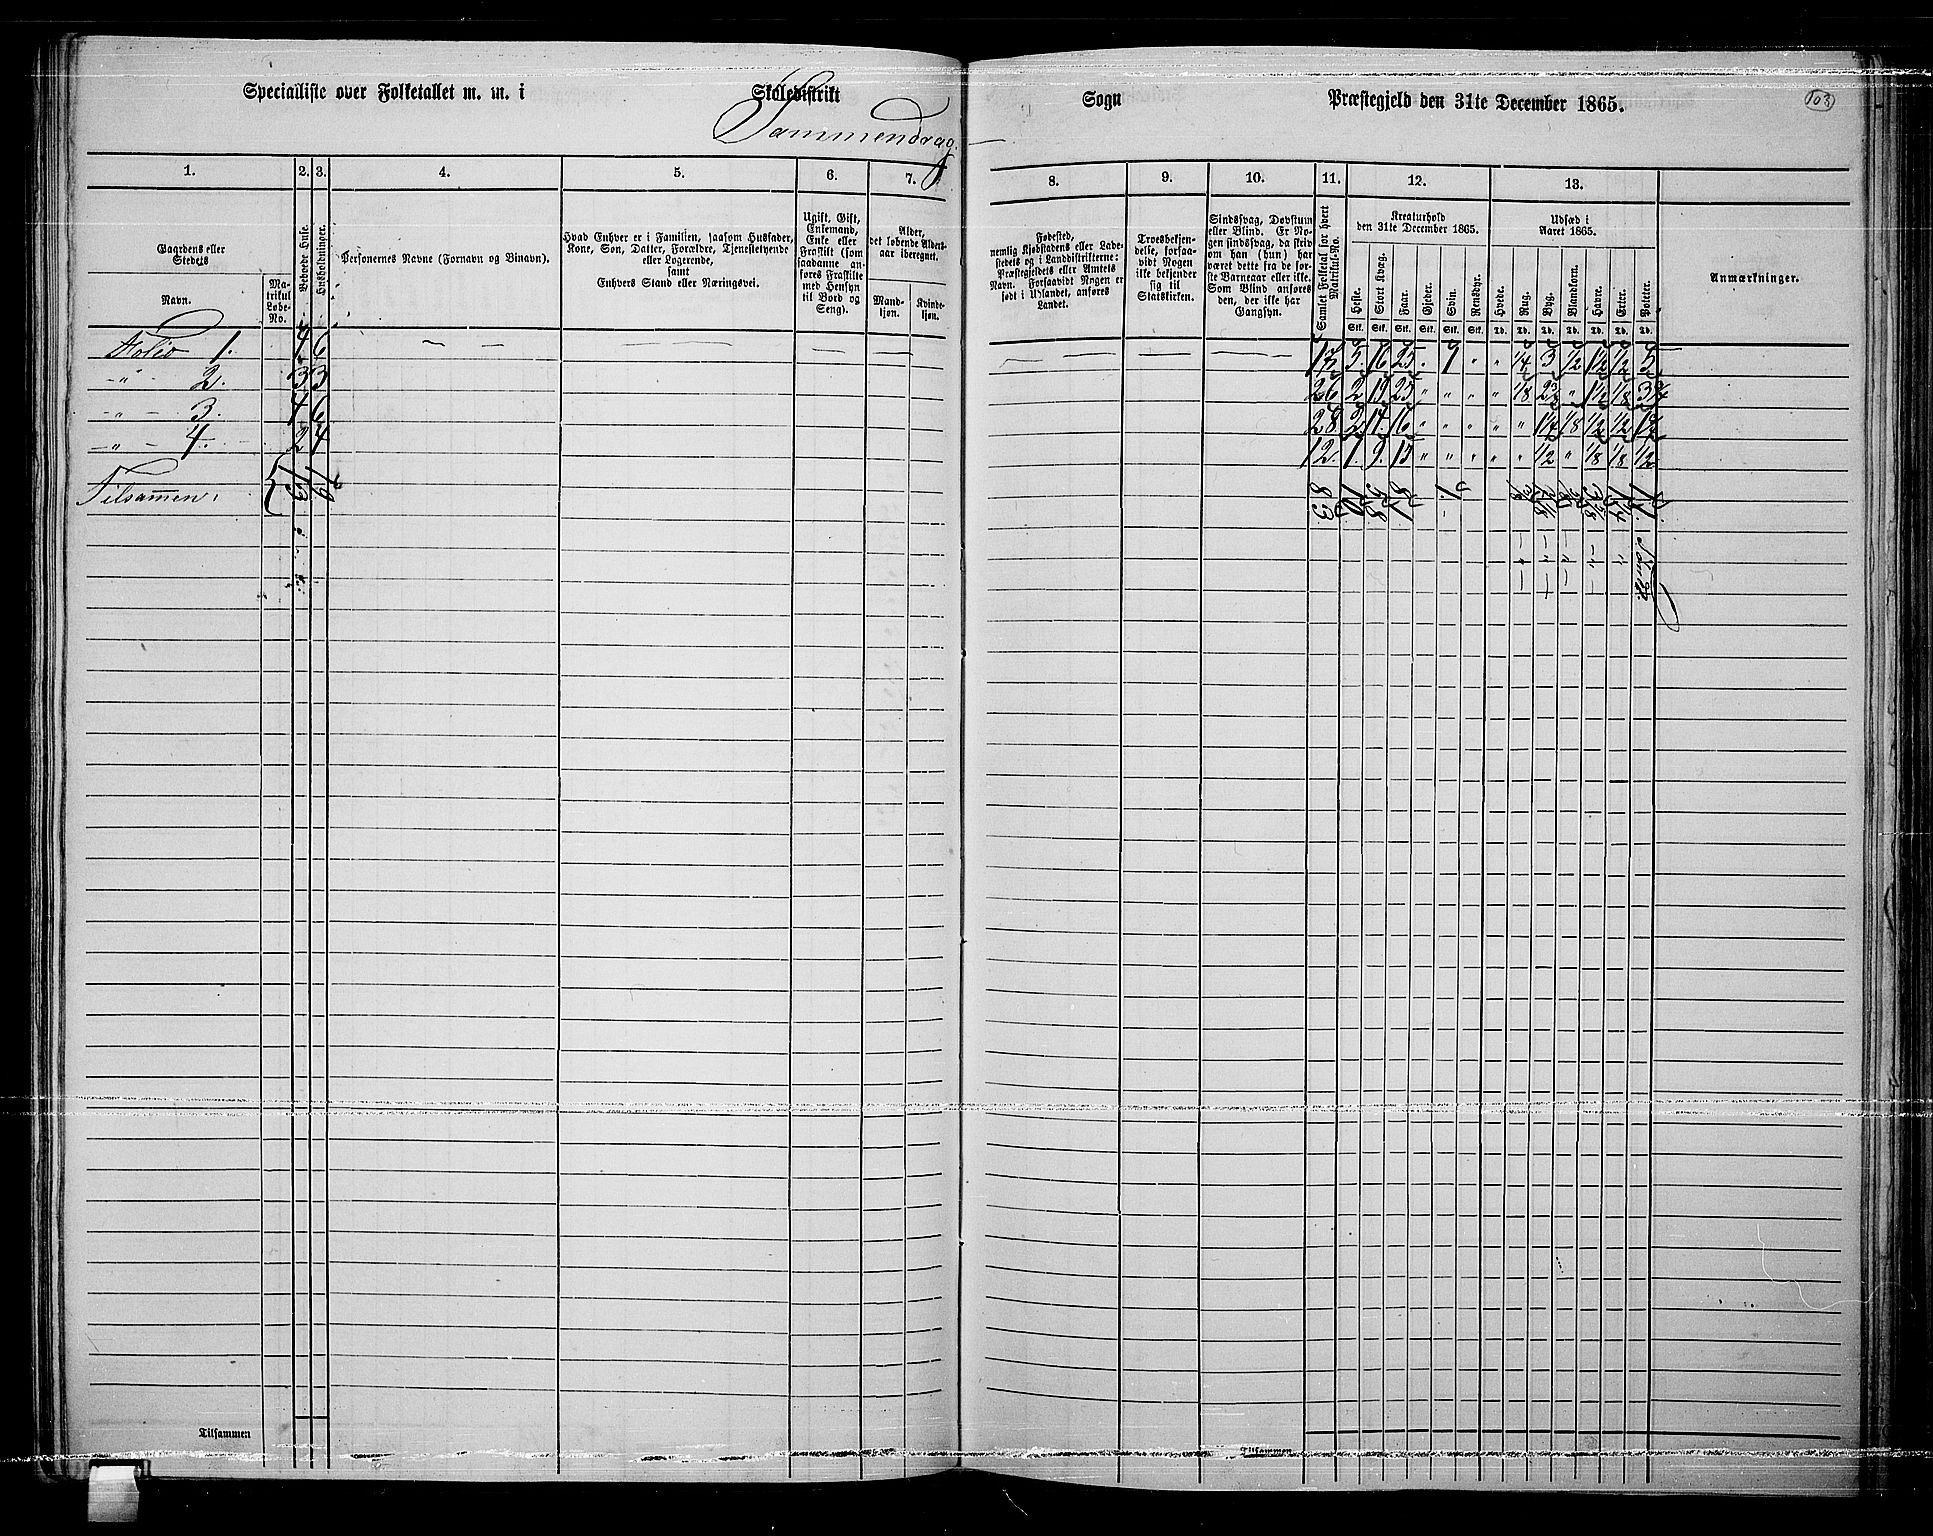 Specialliste over Folketallet m. m. i Skoledistrikt Sogn Præstegjeld den 31te December 1865. 103
Sammendrag.
1. 2. 3. 4. 5. 6. 7. 8. 9. 10. 11. 12. 13.
Gaardens eller Stedets
Navn.
Matrikul Løbe-No.
Beboede Huse.
Husholdninger.
Personernes Navne (Fornavn og Binavn).
Hvad Enhver er i Familien, saasom Husfader,
Kone, Søn, Datter, Forældre, Tjenestetyende
eller Logerende,
samt
Enhvers Stand eller Næringsvei.
Ugift, Gift,
Enkemand,
Enke eller
Fraskilt (som
saadanne anføres
Fraskilte
med Hensyn
til Bord og
Seng).
Alder,
det løbende Alders-
aar iberegnet.
Mandkjøn.
Kvindekjøn.
Fødested,
nemlig Kjøbstadens eller Lade-
stedets og i Landdistrikterne:
Præstegjeldets eller Amtets
Navn. Forsaavidt Nogen er
født i Udlandet, anføres
Landet.
Troesbekjen-
delse, forsaa-
vidt Nogen
ikke bekjender
sig til
Statskirken.
Sindssvag, Døvstum
eller Blind. Er No-
gen sindssvag, da skriv
om han (hun) har
været dette fra de før-
ste Barneaar eller ikke.
Som Blind anføres
den, der ikke har
Gangsyn.
Samlet Folketal for hvert
Matrikul-No.
Kreaturhold
den 31te December 1865.
Heste. Stort Kvæg. Faar. Gjeder. Svin. Rensdyr.
Stk. Stk. Stk. Stk. Stk. Stk.
Udsæd i
Aaret 1865.
Hvede. Rug. Byg. Blandkorn. Havre. Erter. Poteter.
Td. Td. Td. Td. Td. Td. Td.
Anmærkninger.
Folio 1. 4 6 17 5 16 25 " 1 " " 1/4 3 1/2 1 1/2 1/2 5
-"- 2. 3 3 26 2 19 25 " " " " 1/8 " 1/8
-"- 3. 4 6 28 2 14 16 " " " " " 1/8 1/2 1/2
-"- 4. 2 4 12 1 9 15 " " " " " 1/2 " 1/8 1/8 1/2
Tilsammen, 13 19 83 10 58 81 1
Tilsammen Tilsammen